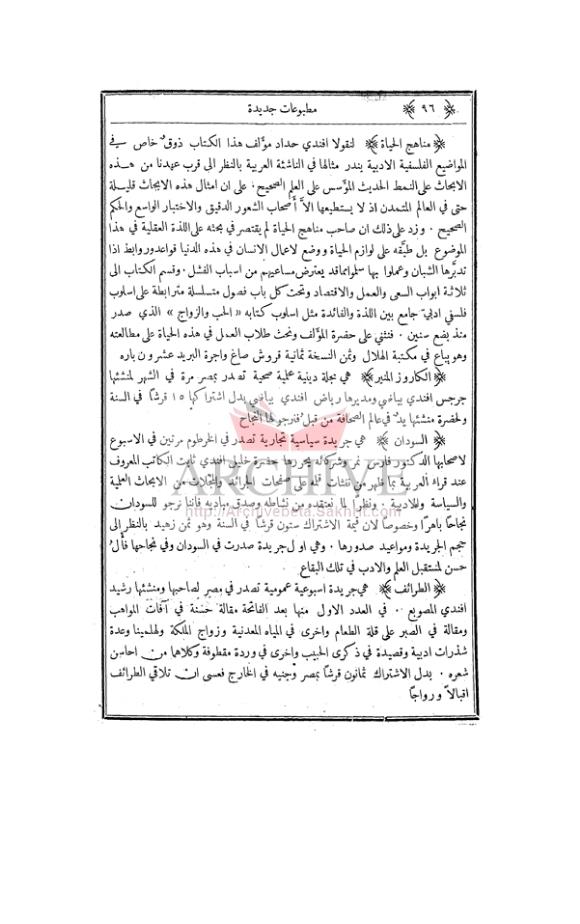 ٩٦ مطبوعات جديدة
مناهج الحياة لنقولا افندي حداد مؤلف هذا الكتاب ذوق خاص في
المواضيع الفلسفية الادبية يندر مثالها في الناشئة العربية بالنظر الى قرب عهدنا من هذه
الابحاث على النمط الحديث المؤسس على العلم الصحيح ؛ على ان امثال هذه الابحاث قليلة
حتى في العالم المتمدن اذ لا يستطيعها الاَّ أصحاب الشعور الدقيق والاختبار الواسع والحكم
الصحيح . وزد على ذلك ان صاحب مناهج الحياة لم يقتصر في بحثه على اللذة العقلية في هذا
الموضوع بل طبَّقه على لوازم الحياة ووضع لاعمال الانسان في هذه الدنيا قواعد وروابط اذا
تدبَّرها الشبان وعملوا بها سلموا مما قد يعترض مساعيهم من اسباب الفشل . وقسم الكتاب الى
ثلاثة ابواب السعى والعمل والاقتصاد وتحت كل باب فصول متسلسلة مترابطة على اسلوب
فلسفي ادبي جامع بين اللذة والفائدة مثل اسلوب كتابه « الحب والزواج » الذي صدر
منذ بضع سنين . فنثني على حضرة المؤلف ونحث طلاب العمل في هذه الحياة على مطالعته
وهو يباع في مكتبة الهلال وثمن النسخة ثمانية قروش صاغ واجرة البريد عشرون باره
الكاروز المنير هي مجلة دينية علمية صحية تصدر بمصر مرة في الشهر لمنشئها
جرجس افندي بياضي ومديرها رياض افندي بياضي بدل اشتراكها ١٥ قرشًا في السنة
ولحضرة منشئها يد في عالم الصحافة من قبل فنرجو لها النجاح
السودان هي جريدة سياسية تجارية تصدر في الخرطوم مرتين في الاسبوع
لاصحابها الدكتور فارس نمر وشركائه يحررها حضرة خليل افندي ثابت الكاتب المعروف
عند قراء العربية بما ظهر من نفثات قلمه على صفحات الجرائد والمجلات من الابحاث العلمية
والسياسة والادبية . ونظرًا لما نعتقده من نشاطه وصدق مباديه فاننا نرجو للسودان
نجاحًا باهرًا وخصوصًا لان قيمة الاشتراك ستون قرشًا في السنة وهو ثمن زهيد بالنظر الى
حجم الجريدة ومواعيد صدورها . وهي اول جريدة صدرت في السودان وفي نجاحها فأل
حسن لمستقبل العلم والادب في تلك البقاع
الطرائف هي جريدة اسبوعية عمومية تصدر في مصر لصاحبها ومنشئها رشيد
افندي المصوبع . في العدد الاول منها بعد الفاتحة مقالة حسنة في آفات المواهب
ومقالة في الصبر على قلة الطعام واخرى في المياه المعدنية وزواج الملكة ولهلمينا وعدة
شذرات ادبية وقصيدة في ذكرى الحبيب واخرى في وردة مقطوفة وكلاهما من احاسن
شعره . بدل الاشتراك ثمانون قرشًا بمصر وجنيه في الخارج فعسى ان تلاقي الطرائف
اقبالاً ورواجًا
ARCHIVE
http://Archivebeta.Sakhrit.com